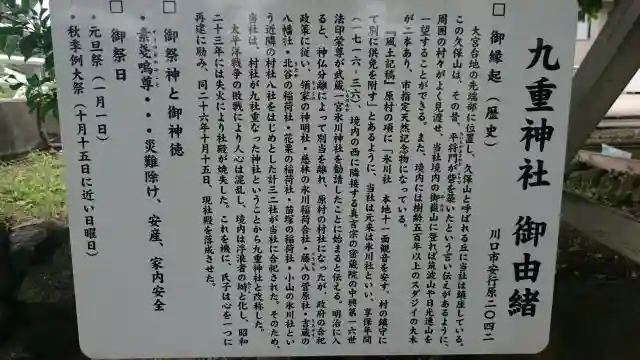 九重神社 御由緒
川口市安行原二〇四二
□ 御縁起(歴史)
大宮台地の先端部に位置し、久保山と呼ばれる丘に当社は鎮座している。
この久保山は、その昔、平将門が砦を築いたという言い伝えがあるように、
周囲の村々がよく見渡せ、当社境内の御嶽山に登れば筑波山や日光連山を
一望することができる。また、境内には樹齢五百年以上のスダジイの大木
が二本あり、市指定天然記念物になっている。
『風土記稿』原村の項に「氷川社 本地十一面観音を安ず、村の鎮守に
て別に供免を附す」とあるように、当社は元来は氷川社といい、享保年間
(一七一六~三六)、境内の西に隣接する真言宗の密蔵院の中興第一六世
法印栄尊が武蔵一宮氷川神社を勧請したことに始まると伝える。明治に入
ると、神仏分離によって別当を離れ、原村の村社になったが、政府の合祀
政策に従い、領家の神明社・慈林の氷川稲荷合社・藤八の菅原社・吉蔵の
八幡社・北谷の稲荷社・花栗の稲荷社・苗塚の稲荷社・小山の氷川社とい
う近隣の村社八社をはじめとした廿三社が当社に合祀された。そのため、
当社は、村社が九社重なった神社ということから九重神社と改称した。
太平洋戦争の敗戦により人心は混乱し、境内は浮浪者の巣と化し、昭和
二十三年には失火により社殿が焼失した。これを機に、氏子は心を一つに
再建に励み、同二十六年十月十五日、現社殿を落成させた。
□ 御祭神と御神徳
・素盞嗚尊・・・災難除け、安産、家内安全
□ 御祭日
・元旦祭(一月一日)
・秋季例大祭(十月十五日に近い日曜日)